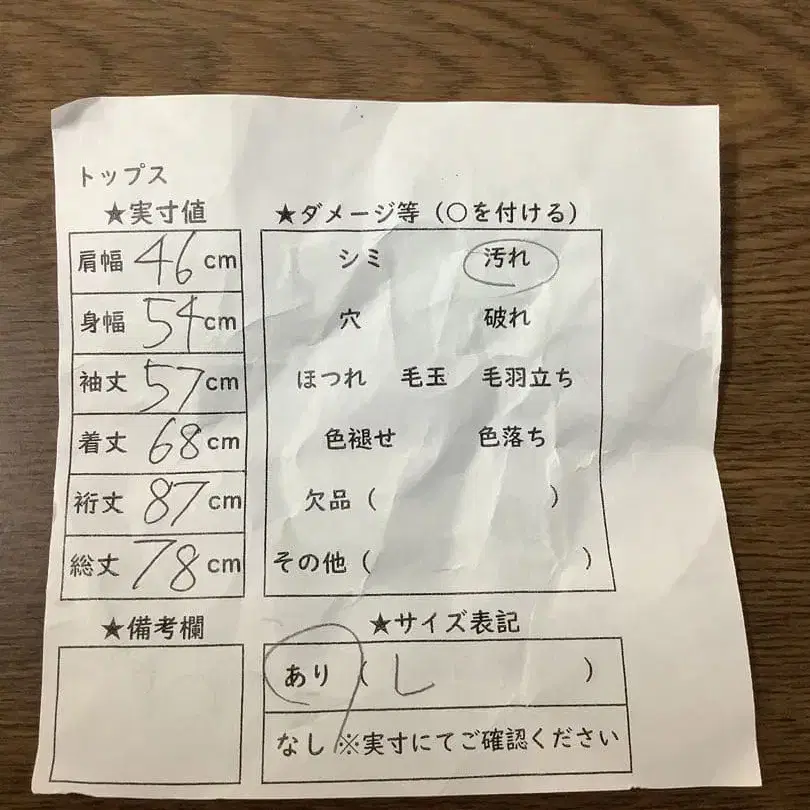 トップス
★実寸値
肩幅 46 cm
身幅 54 cm
袖丈 57 cm
着丈 68 cm
裄丈 87 cm
総丈 78 cm
★備考欄
★ダメージ等（○を付ける）
シミ 汚れ
穴 破れ
ほつれ 毛玉 毛羽立ち
色褪せ 色落ち
欠品（ ）
その他（ ）
★サイズ表記
あり（ L ）
なし ※実寸にてご確認ください